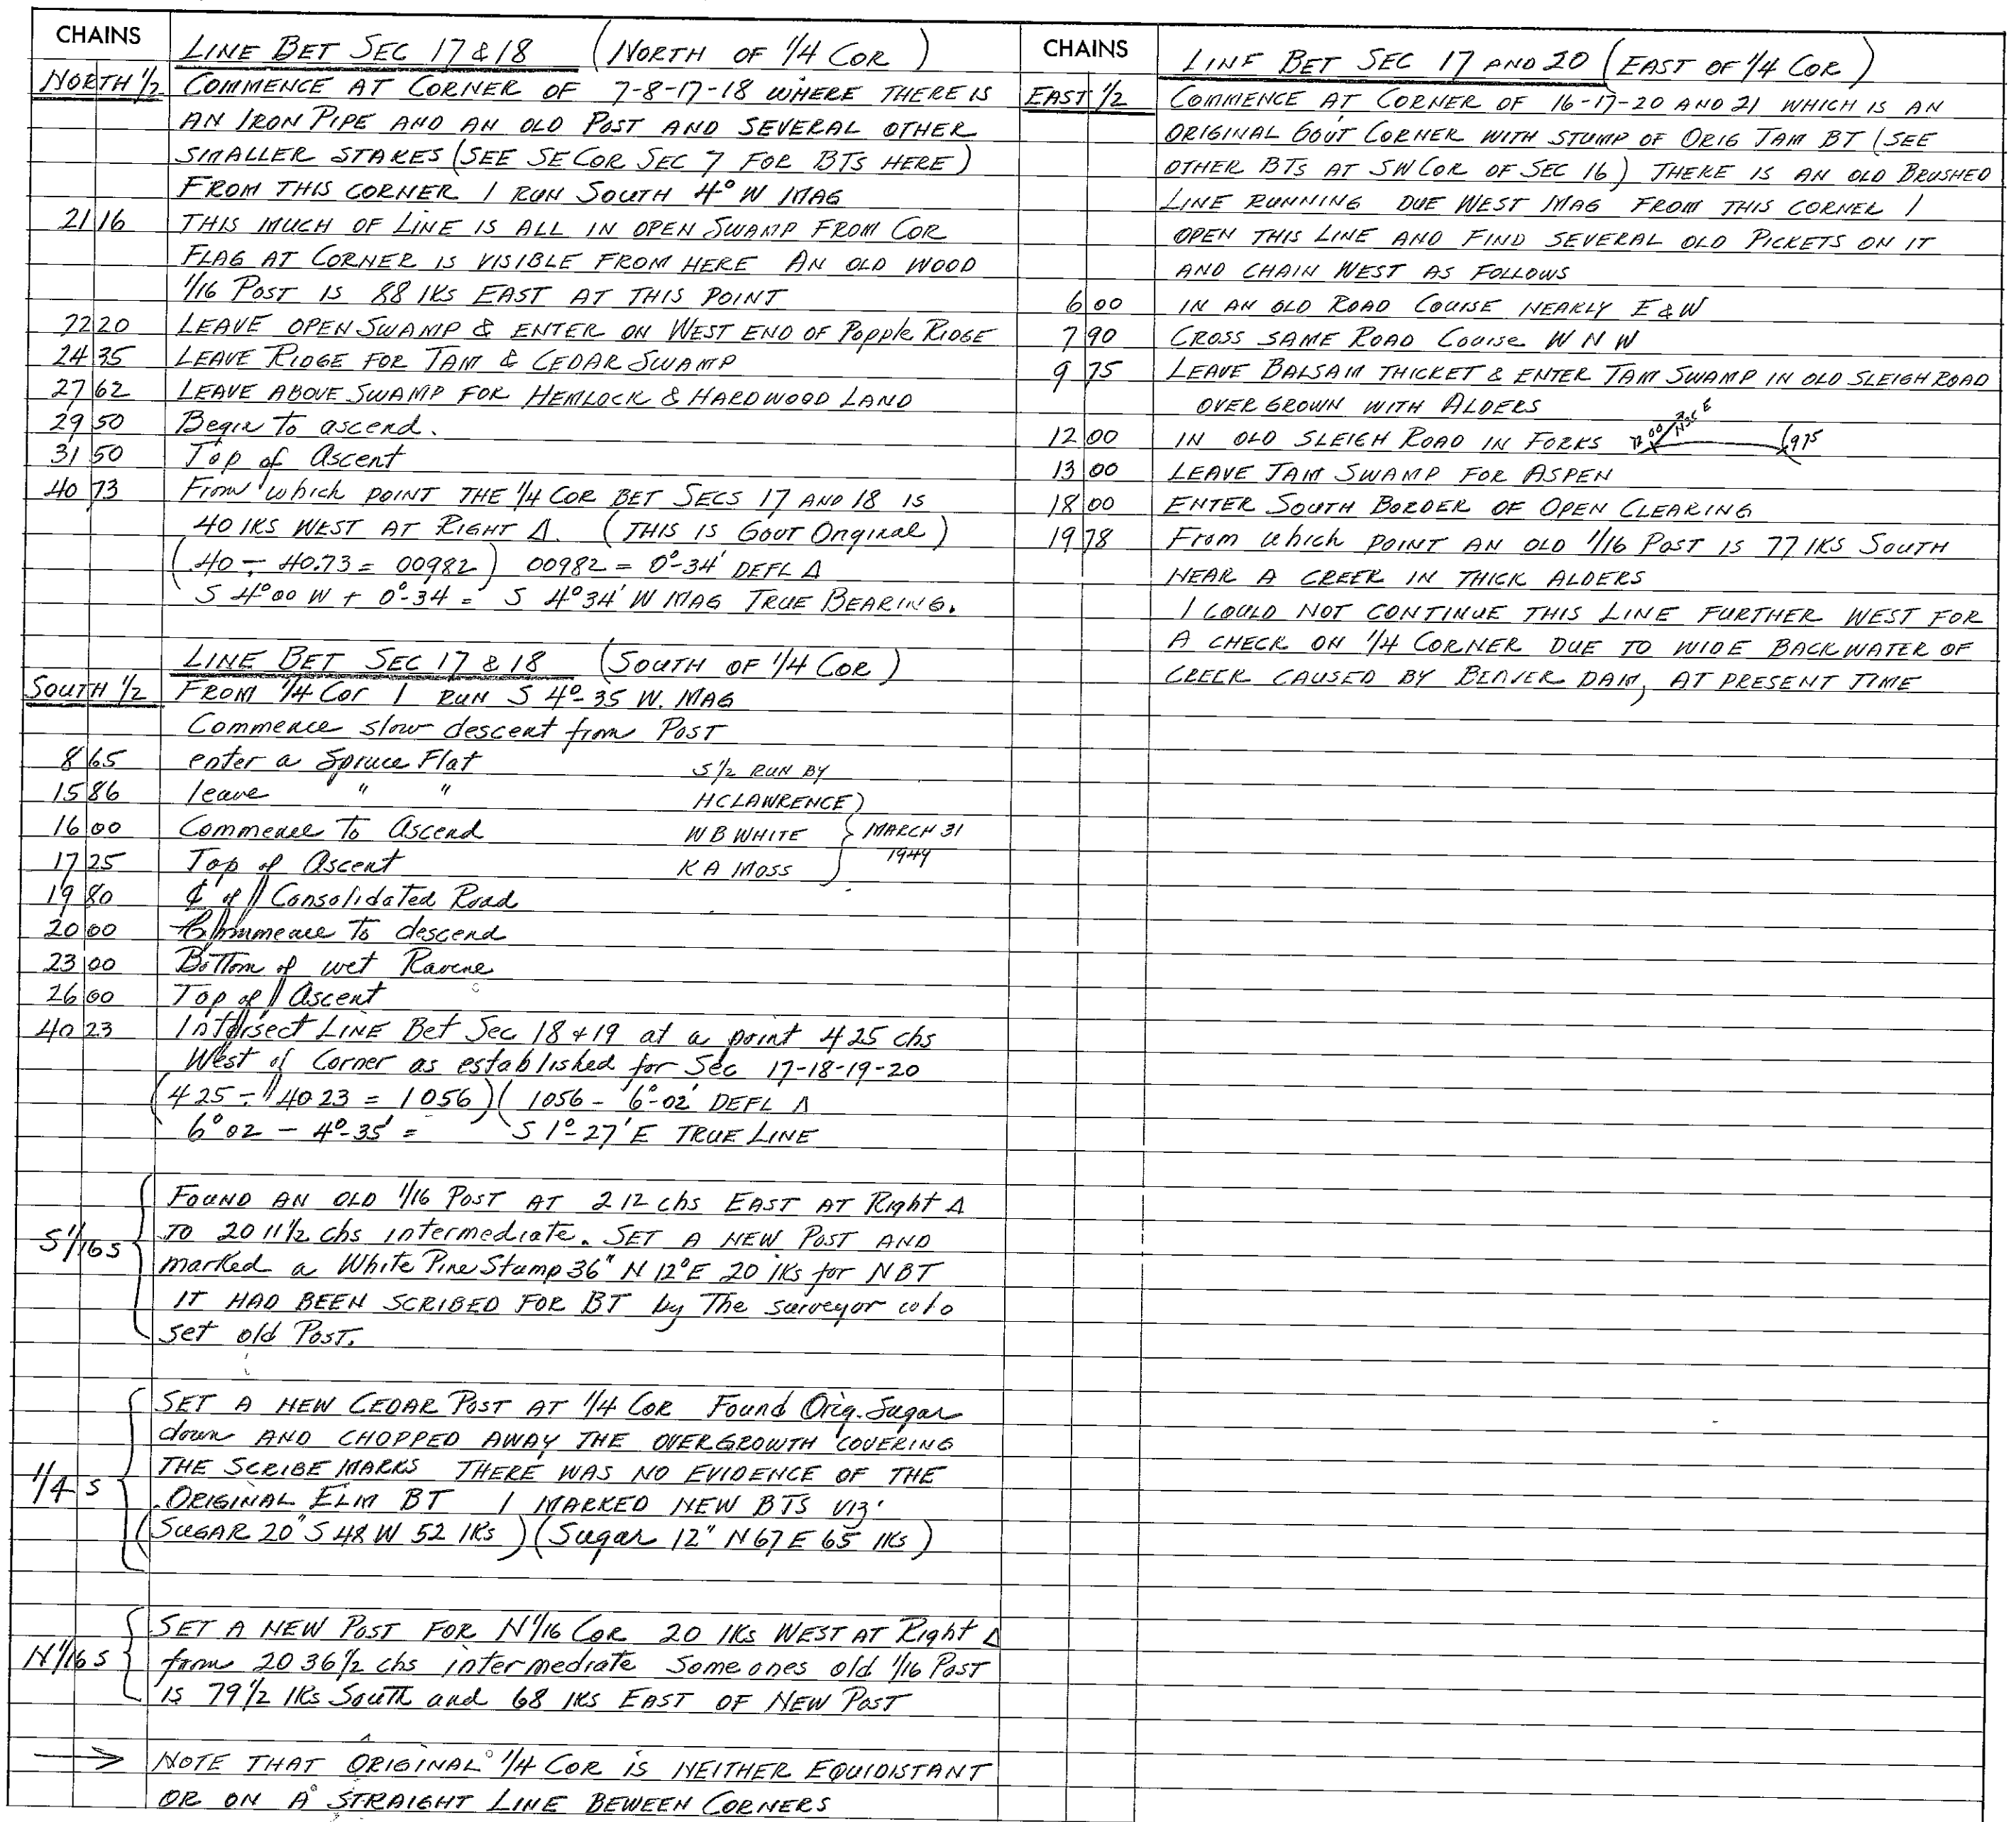 CHAINS
LINE BET SEC 17 & 18 (NORTH OF 1/4 COR)
NORTH 1/2 COMMENCE AT CORNER OF 7-8-17-18 WHERE THERE IS
AN IRON PIPE AND AN OLD POST AND SEVERAL OTHER
SMALLER STAKES (SEE SE COR SEC 7 FOR BTS HERE)
FROM THIS CORNER I RUN SOUTH 4° W MAG
21 16 THIS MUCH OF LINE IS ALL IN OPEN SWAMP FROM COR
FLAG AT CORNER IS VISIBLE FROM HERE AN OLD WOOD
1/16 POST IS 88 LKS EAST AT THIS POINT
22 20 LEAVE OPEN SWAMP & ENTER ON WEST END OF Popple RIDGE
24 35 LEAVE RIDGE FOR TAM & CEDAR SWAMP
27 62 LEAVE ABOVE SWAMP FOR HEMLOCK & HARDWOOD LAND
29 50 Begin To ascend.
31 50 Top of Ascent
40 73 From which POINT THE 1/4 COR BET SECS 17 AND 18 IS
40 LKS WEST AT RIGHT ∆. (THIS IS GOVT Original)
(40 ÷ 40.73 = 00982) 00982 = 0°-34' DEFL ∆
S 4°00 W + 0°-34 = S 4°34' W MAG TRUE BEARING.
LINE BET SEC 17 & 18 (SOUTH OF 1/4 COR)
SOUTH 1/2 FROM 1/4 COR I RUN S 4°-35 W. MAG
Commence slow descent from Post
8 65 enter a Spruce Flat
15 86 leave " "
16 00 Commence To Ascend
17 25 Top of Ascent
S 1/2 RUN BY
H C LAWRENCE)
W B WHITE
K A MOSS
MARCH 31
1944
19 80 ₵ of Consolidated Road
20 00 Commence To descend
23 00 Bottom of wet Ravene
26 00 Top of Ascent
40 23 Intersect LINE Bet Sec 18 + 19 at a point 4 25 chs
West of Corner as established for Sec 17-18-19-20
(4 25 ÷ 40 23 = 1056)(1056 - 6°-02' DEFL ∆
6° 02 - 4°-35' = S 1°-27' E TRUE LINE
S 1/16 S
FOUND AN OLD 1/16 POST AT 2 12 chs EAST AT Right ∆
TO 20 11 1/2 chs intermediate. SET A NEW POST AND
marked a White Pine Stump 36" N 12° E 20 lks for NBT
IT HAD BEEN SCRIBED FOR BT by The surveyor who
set old Post.
1/4 S
SET A NEW CEDAR POST AT 1/4 COR Found Orig. Sugar
down AND CHOPPED AWAY THE OVERGROWTH COVERING
THE SCRIBE MARKS THERE WAS NO EVIDENCE OF THE
ORIGINAL ELM BT I MARKED NEW BTS VIZ:
(SUGAR 20" S 48 W 52 lks)(Sugar 12" N 67 E 65 lks)
N 1/16 S
SET A NEW POST FOR N 1/16 COR 20 lks WEST AT Right ∆
from 20 36 1/2 chs intermediate Someones old 1/16 Post
IS 79 1/2 lks South and 68 lks EAST OF NEW POST
→ NOTE THAT ORIGINAL 1/4 COR IS NEITHER EQUIDISTANT
OR ON A STRAIGHT LINE BEWEEN CORNERS
CHAINS
LINE BET SEC 17 AND 20 (EAST OF 1/4 COR)
EAST 1/2 COMMENCE AT CORNER OF 16-17-20 AND 21 WHICH IS AN
ORIGINAL GOVT CORNER WITH STUMP OF ORIG TAM BT (SEE
OTHER BTS AT SW COR OF SEC 16) THERE IS AN OLD BRUSHED
LINE RUNNING DUE WEST MAG FROM THIS CORNER I
OPEN THIS LINE AND FIND SEVERAL OLD PICKETS ON IT
AND CHAIN WEST AS FOLLOWS
6 00 IN AN OLD ROAD COUISE NEARLY E & W
7 90 CROSS SAME ROAD Couise W N W
9 75 LEAVE BALSAM THICKET & ENTER TAM SWAMP IN OLD SLEIGH ROAD
OVER GROWN WITH ALDERS
12 00 IN OLD SLEIGH ROAD IN FORKS 12 00 N 25 E 9 75
13 00 LEAVE TAM SWAMP FOR ASPEN
18 00 ENTER SOUTH BORDER OF OPEN CLEARING
19 78 From which POINT AN OLD 1/16 POST IS 77 LKS SOUTH
NEAR A CREEK IN THICK ALDERS
I COULD NOT CONTINUE THIS LINE FURTHER WEST FOR
A CHECK ON 1/4 CORNER DUE TO WIDE BACKWATER OF
CREEK CAUSED BY BEAVER DAM, AT PRESENT TIME